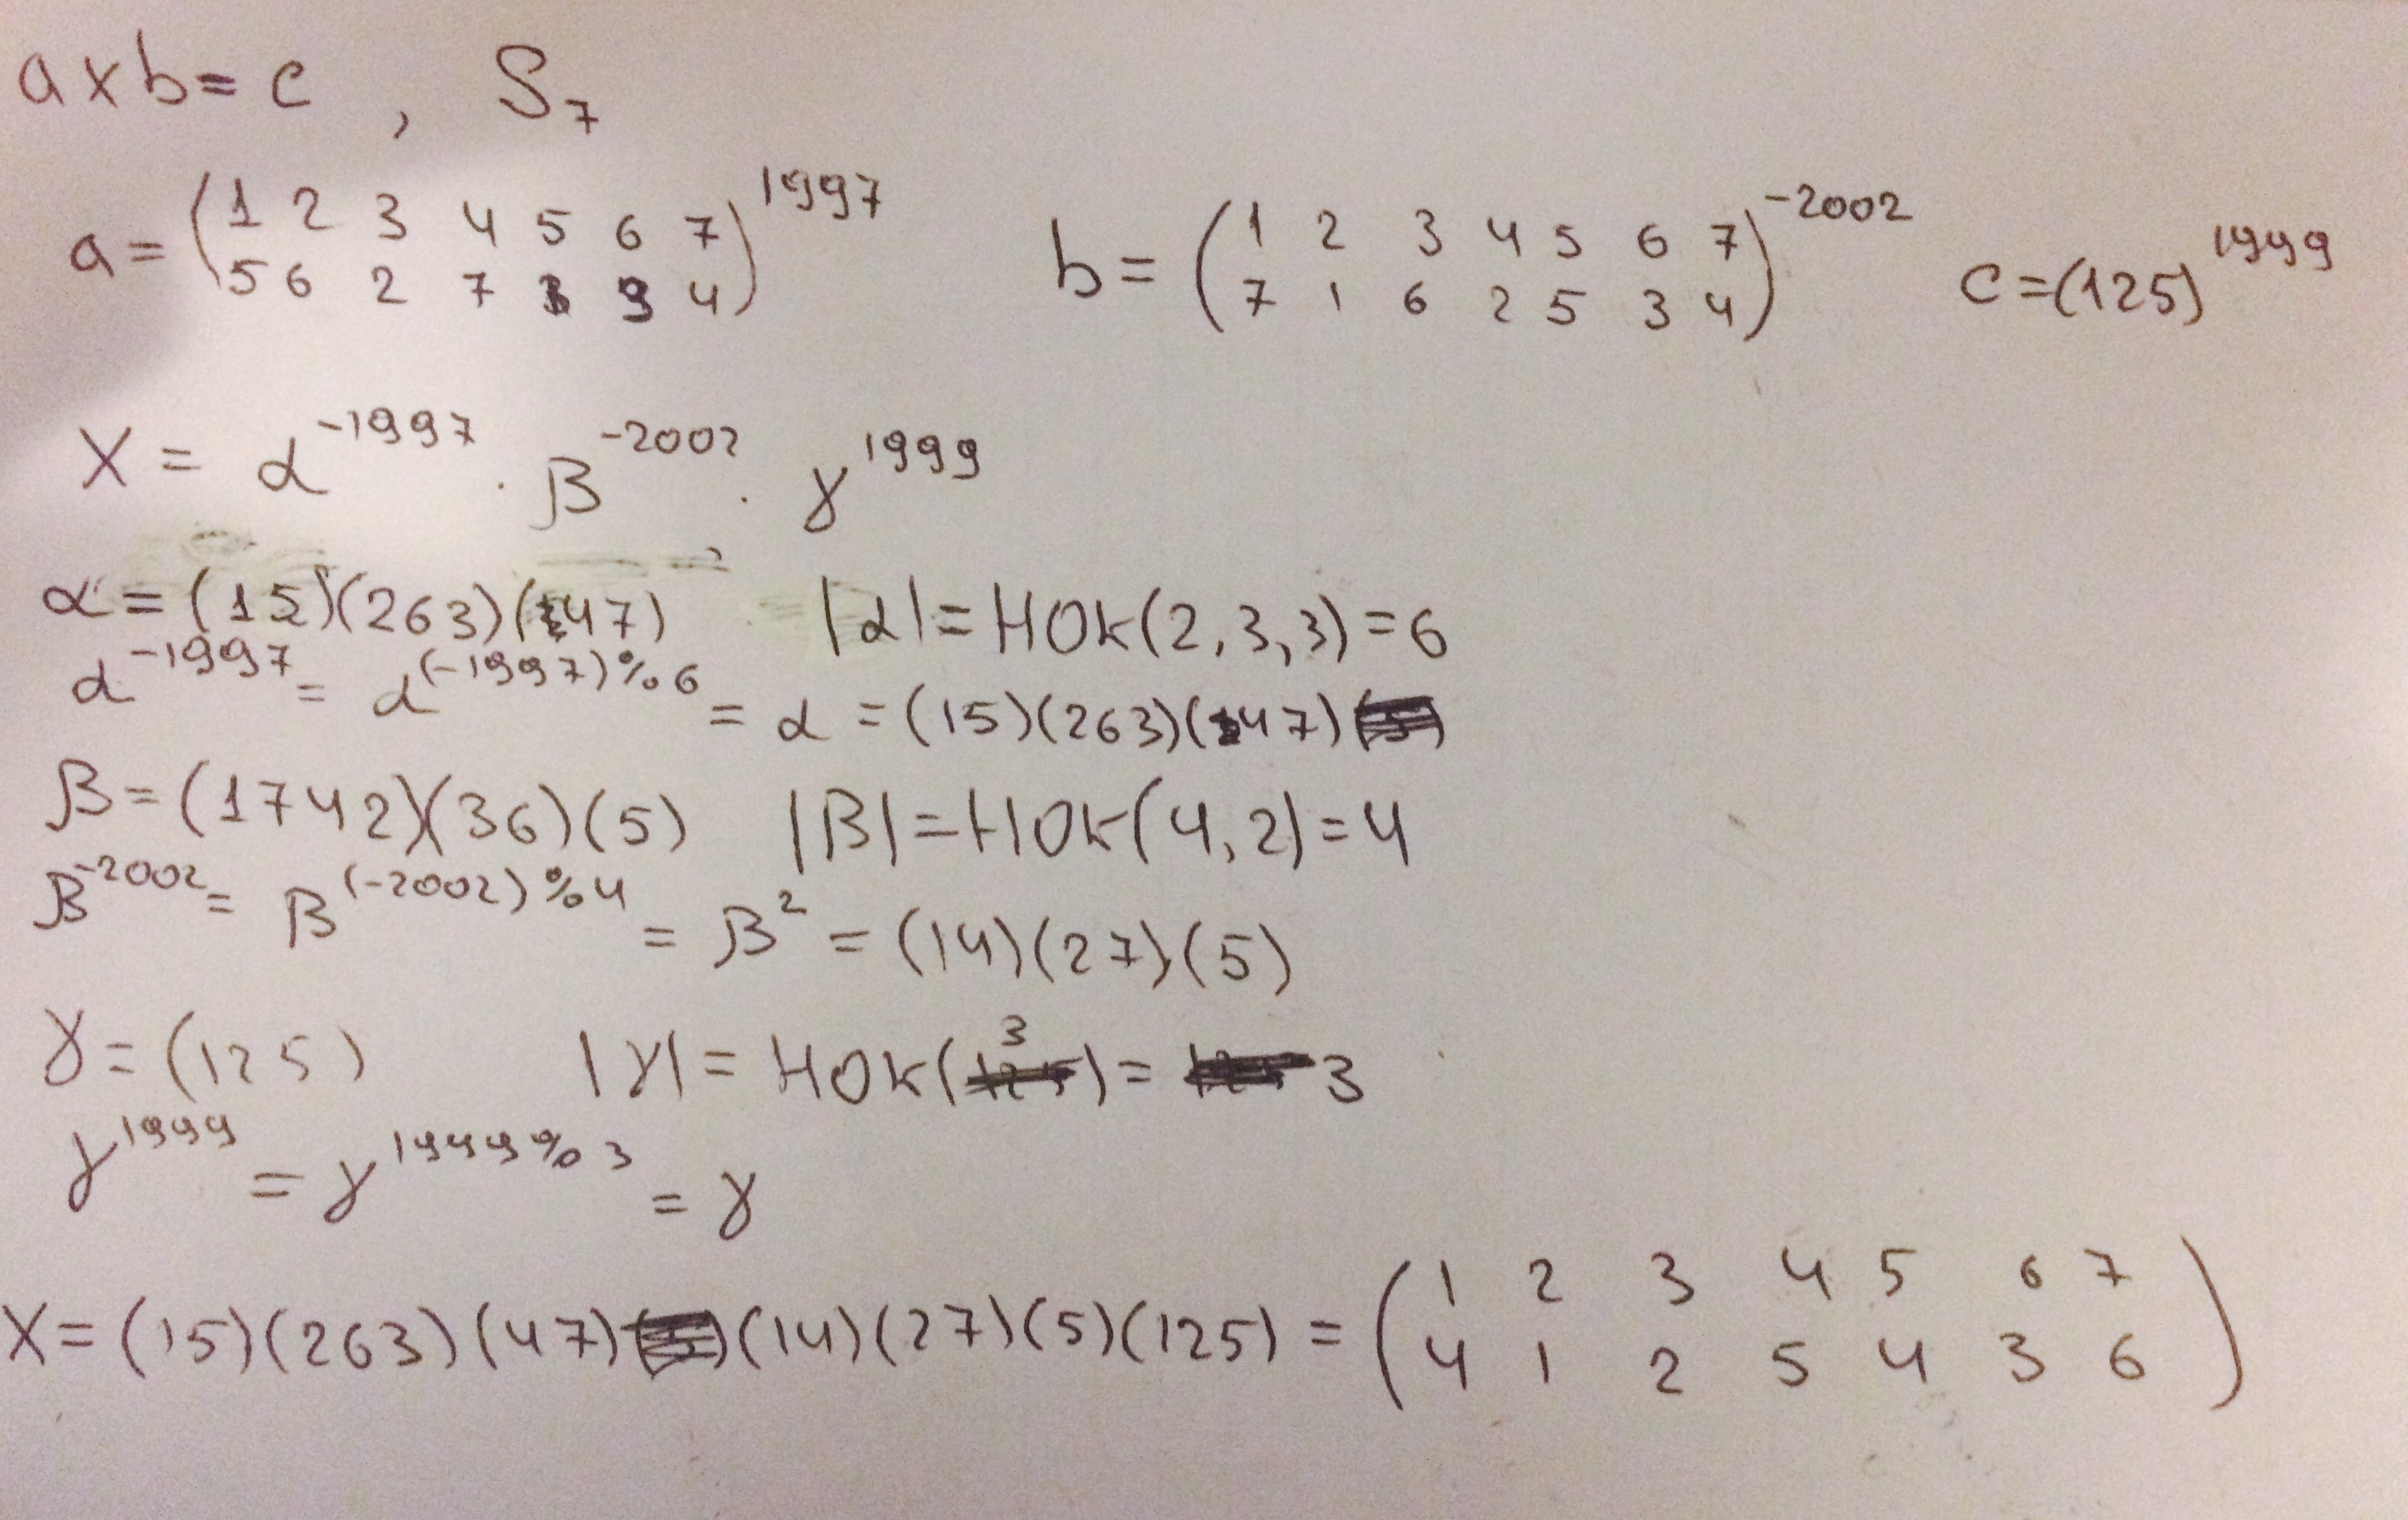 a x b = c , S₇
a = (1 2 3 4 5 6 7 / 5 6 2 7 1 3 4)¹⁹⁹⁷ b = (1 2 3 4 5 6 7 / 7 1 6 2 5 3 4)⁻²⁰⁰² c = (125)¹⁹⁹⁹
X = α⁻¹⁹⁹⁷ · β⁻²⁰⁰² · γ¹⁹⁹⁹
α = (15)(263)(47) |α| = НОК(2,3,3) = 6
α⁻¹⁹⁹⁷ = α^(-1997)%6 = α = (15)(263)(47)
β = (1742)(36)(5) |β| = НОК(4,2) = 4
β⁻²⁰⁰² = β^(-2002)%4 = β² = (14)(27)(5)
γ = (125) |γ| = НОК(3) = 3
γ¹⁹⁹⁹ = γ^1999%3 = γ
X = (15)(263)(47)(14)(27)(5)(125) = (1 2 3 4 5 6 7 / 4 1 2 5 4 3 6)